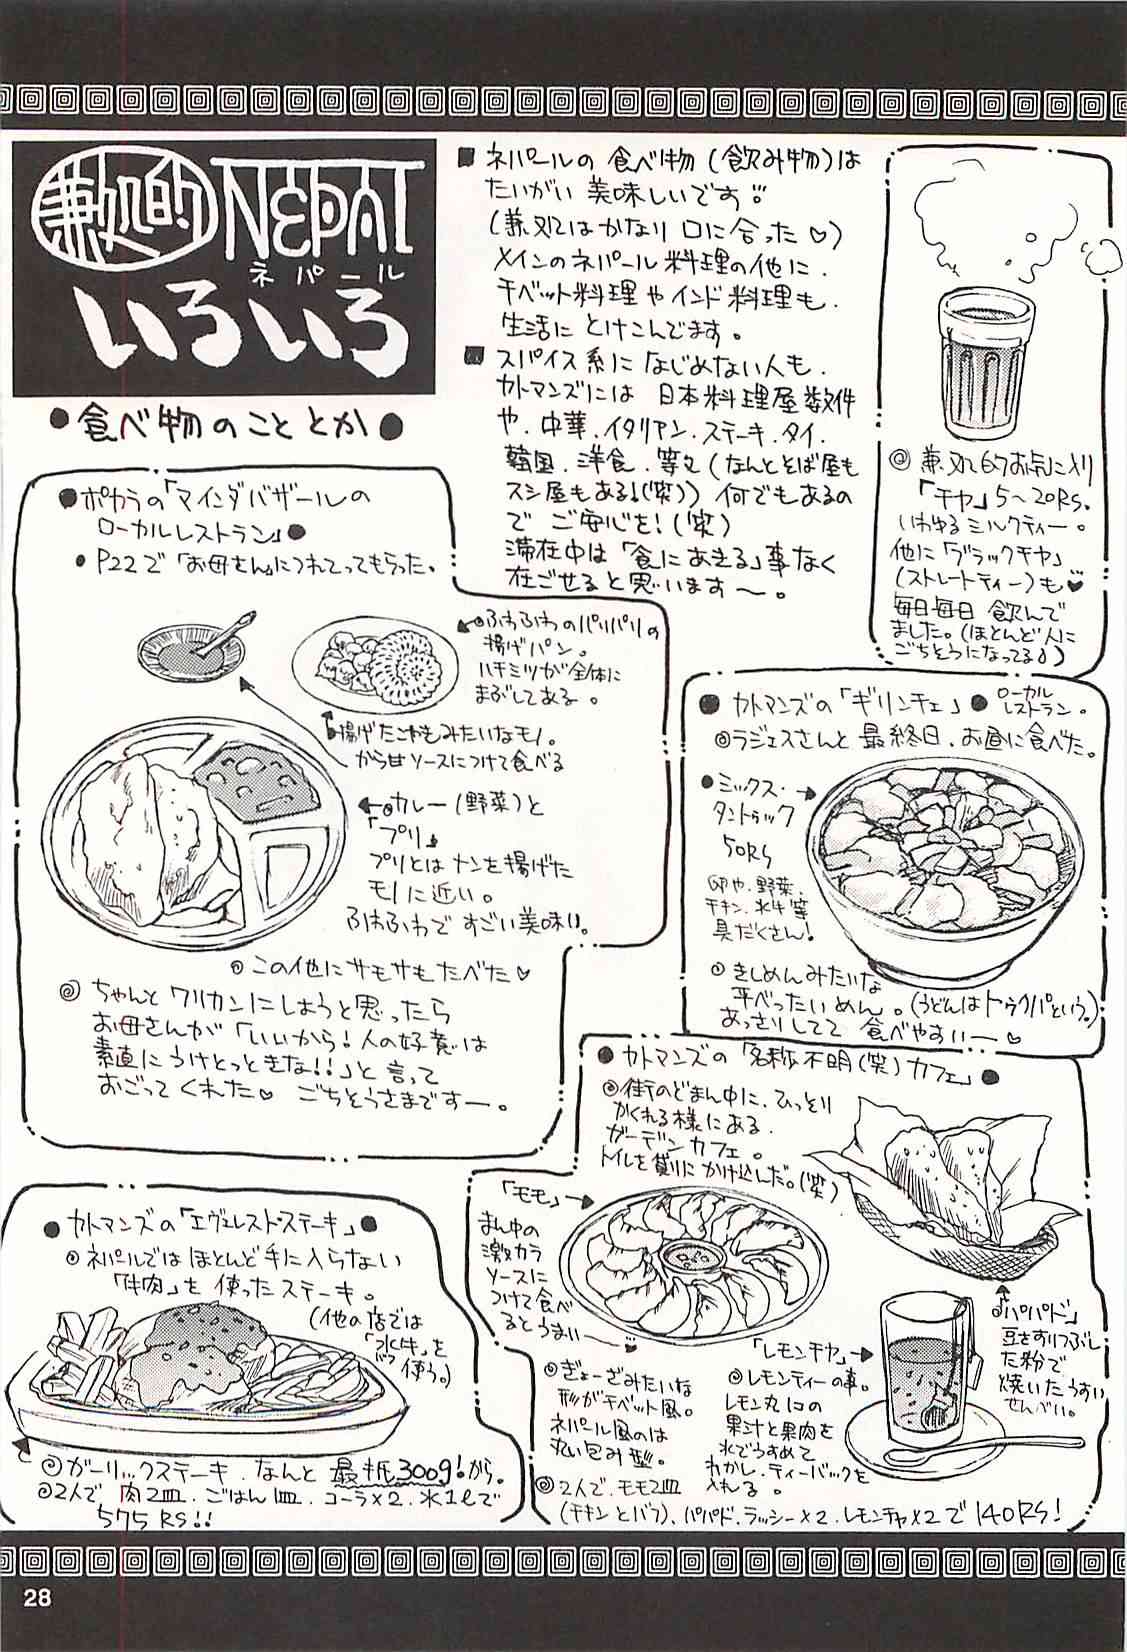 兼処的 NEPAL
ネパール
いろいろ
●食べ物のこととか●
■ネパールの食べ物(飲み物)は
たいがい美味しいです
(兼処はかなり口に合った♡)
メインのネパール料理の他に、
チベット料理やインド料理も、
生活にとけこんでます。
■スパイス系になじめない人も、
カトマンズには日本料理屋数件
や、中華、イタリアン、ステーキ、タイ、
韓国、洋食、等々(なんとそば屋も
スシ屋もある!(笑))何でもあるの
で ご安心を!(笑)
滞在中は「食にあきる」事なく
在ごせると思います〜。
◎兼処的お気に入り
「チヤ」5〜20RS.
いわゆるミルクティー。
他に「ブラックチヤ」
(ストレートティー)も♥
毎日毎日飲んで
ました。(ほとんど人に
ごちそうになってる)
●ポカラの「マインダバザールの
ローカルレストラン」●
●P22で「お母さん」につれてってもらった。
◎ふわふわのパリパリの
揚げパン。
ハチミツが全体に
まぶしてある。
揚げたこやきみたいなモノ。
から甘ソースにつけて食べる
◎カレー(野菜)と
「プリ」
プリとはナンを揚げた
モノに近い。
ふわふわですごい美味い。
◎この他にサモサもたべた♡
◎ちゃんとワリカンにしようと思ったら
お母さんが「いいから!人の好意は
素直にうけとっときな!!」と言って
おごってくれた♡ ごちそうさまですー。
●カトマンズの「ギリンチェ」● ローカル
レストラン。
◎ラジェスさんと最終日、お昼に食べた。
●ミックス・
タントゥック
50RS
卵や、野菜、
チキン、水牛等
具だくさん!
◎きしめんみたいな
平べったいめん。(うどんはトゥクパという。)
あっさりしてて食べやすいー♡
●カトマンズの「名称不明(笑)カフェ」●
◎街のどまん中に、ひっそり
かくれる様にある、
ガーデンカフェ。
トイレを借りにかけ込んだ。(笑)
「モモ」→
まん中の
激カラ
ソースに
つけて食べ
るとうまい〜
◎ぎょーざみたいな
形がチベット風。
ネパール風のは
丸い包み型。
「レモンチヤ」→
◎レモンティーの事。
レモン丸1コの
果汁と果肉を
水でうすめて
わかし、ティーバックを
入れる。
◎「パパド」
豆をすりつぶし
た粉で
焼いたうすい
せんべい。
◎2人で、モモ2皿
(チキンとバフ)、パパド、ラッシー×2、レモンチヤ×2で140RS!
●カトマンズの「エヴェレストステーキ」●
◎ネパールではほとんど手に入らない
「牛肉」を使ったステーキ。
(他の店では
「水牛」を
バフ
使う。)
◎ガーリックステーキ、なんと最低300g!から。
◎2人で 肉2皿、ごはん1皿、コーラ×2、水1ℓで
575RS!!
28